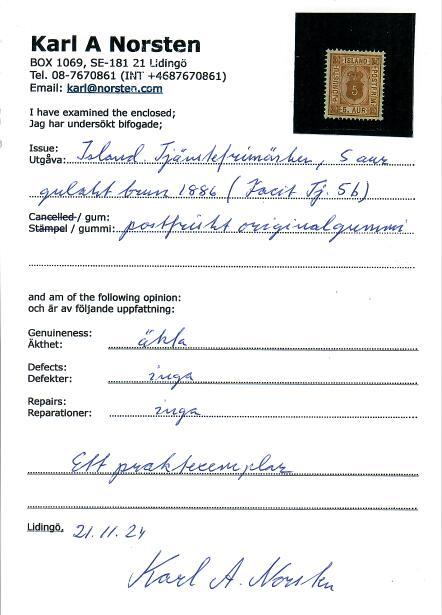 Karl A Norsten
BOX 1069, SE-181 21 Lidingö
Tel. 08-7670861 (INT +4687670861)
Email: karl@norsten.com
ISLAND
PJONUSTU
POSTFRIM
5
5 AUR
I have examined the enclosed;
Jag har undersökt bifogade;
Issue:
Utgåva: Island. Tjänstefrimärken, 5 aur
gulakt brun 1886 (Facit Tj. 5b)
Cancelled / gum:
Stämpel / gummi: postfriskt originalgummi
and am of the following opinion:
och är av följande uppfattning:
Genuineness:
Äkthet: äkta
Defects:
Defekter: inga
Repairs:
Reparationer: inga
Ett praktexemplar
Lidingö, 21.11.24
Karl A. Norsten